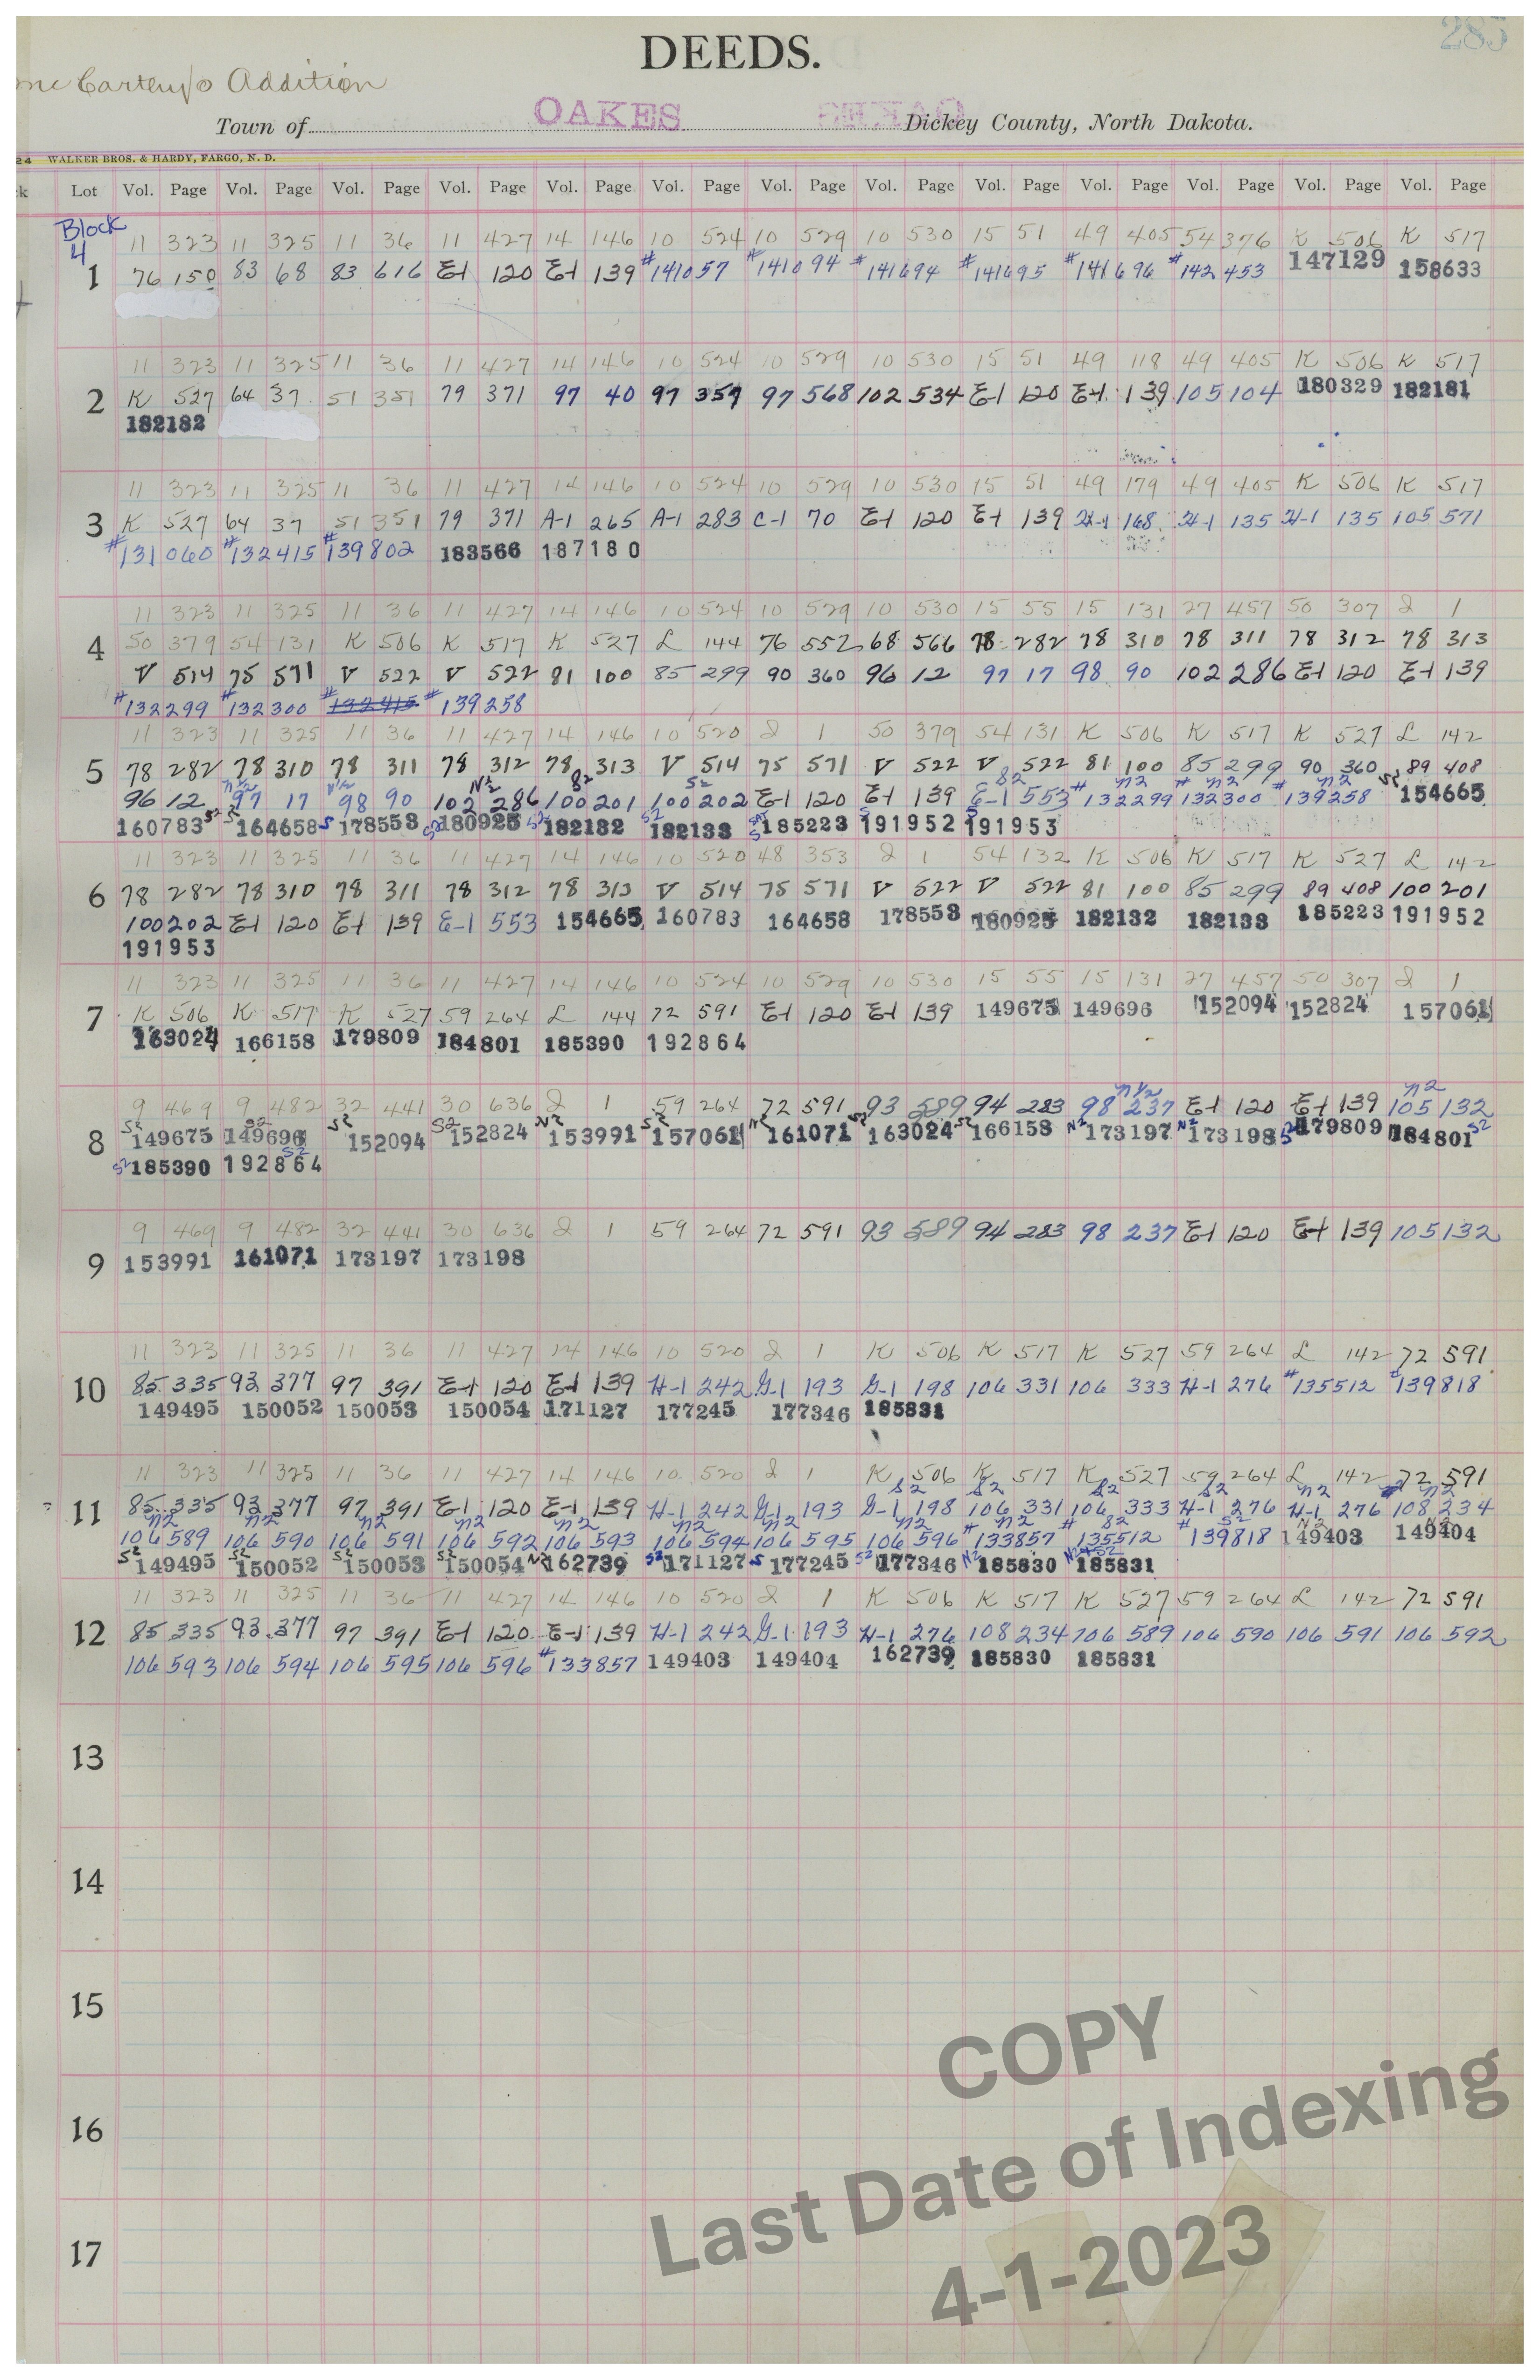 285
DEEDS.
mc Carteny's Addition
Town of OAKES Dickey County, North Dakota.
24 WALKER BROS. & HARDY, FARGO, N. D.
k Lot Vol. Page Vol. Page Vol. Page Vol. Page Vol. Page Vol. Page Vol. Page Vol. Page Vol. Page Vol. Page Vol. Page Vol. Page Vol. Page
Block
4
11 323 11 325 11 36 11 427 14 146 10 524 10 529 10 530 15 51 49 405 54 376 K 506 K 517
1 76 150 83 68 83 616 E-1 120 E-1 139 #141057 #141094 #141694 #141695 #141696 #142453 147129 158633
11 323 11 325 11 36 11 427 14 146 10 524 10 529 10 530 15 51 49 118 49 405 K 506 K 517
2 K 527 64 37 51 351 79 371 97 40 97 359 97 568 102 534 E-1 120 E-1 139 105 104 180329 182181
182182
11 323 11 325 11 36 11 427 14 146 10 524 10 529 10 530 15 51 49 179 49 405 K 506 K 517
3 K 527 64 37 51 351 79 371 A-1 265 A-1 283 C-1 70 E-1 120 E-1 139 H-1 168 H-1 135 H-1 135 105 571
#131060 #132415 #139802 183566 187180
11 323 11 325 11 36 11 427 14 146 10 524 10 529 10 530 15 55 15 131 27 457 50 307 2 1
4 50 379 54 131 K 506 K 517 K 527 L 144 76 552 68 566 78 282 78 310 78 311 78 312 78 313
V 514 75 571 V 522 V 522 81 100 85 299 90 360 96 12 97 17 98 90 102 286 E-1 120 E-1 139
#132299 #132300 #132415 #139258
11 323 11 325 11 36 11 427 14 146 10 520 2 1 50 379 54 131 K 506 K 517 K 527 L 142
5 78 282 78 310 78 311 78 312 78 313 V 514 75 571 V 522 V 522 81 100 85 299 90 360 89 408
N 1/2 N 1/2 N2 S2 S2 S2 N2 N2 N2 S2
96 12 97 17 98 90 102 286 100 201 100 202 E-1 120 E-1 139 E-1 553 #132299 #132300 #139258 154665
160783 S2 S2 164658 S 178553 S2 180925 S2 182132 S2 182133 185223 S 191952 S 191953
11 323 11 325 11 36 11 427 14 146 10 520 48 353 2 1 54 132 K 506 K 517 K 527 L 142
6 78 282 78 310 78 311 78 312 78 313 V 514 75 571 V 522 V 522 81 100 85 299 89 408 100 201
100 202 E-1 120 E-1 139 E-1 553 154665 160783 164658 178553 180925 182132 182133 185223 191952
191953
11 323 11 325 11 36 11 427 14 146 10 524 10 529 10 530 15 55 15 131 27 457 50 307 2 1
7 K 506 K 517 K 527 59 264 L 144 72 591 E-1 120 E-1 139 149675 149696 152094 152824 157061
163024 166158 179809 184801 185390 192864
N 1/2 N2
9 469 9 482 32 441 30 636 2 1 59 264 72 591 93 589 94 283 98 237 E-1 120 E-1 139 105 132
8 S2 149675 S2 149696 S2 152094 S2 152824 N2 153991 S2 157061 N2 161071 S2 163024 S2 166158 N2 173197 N2 173198 S2 179809 184801 S2
S2 185390 S2 192864
9 469 9 482 32 441 30 636 2 1 59 264 72 591 93 589 94 283 98 237 E-1 120 E-1 139 105 132
9 153991 161071 173197 173198
11 323 11 325 11 36 11 427 14 146 10 520 2 1 K 506 K 517 K 527 59 264 L 142 72 591
10 85 335 93 377 97 391 E-1 120 E-1 139 H-1 242 G-1 193 G-1 198 106 331 106 333 H-1 276 #135512 #139818
149495 150052 150053 150054 171127 177245 177346 185831
11 323 11 325 11 36 11 427 14 146 10 520 2 1 K 506 K 517 K 527 59 264 L 142 72 591
S2 S2 S2 S2 N2 N2
11 85 335 93 377 97 391 E-1 120 E-1 139 H-1 242 G-1 193 G-1 198 106 331 106 333 H-1 276 H-1 276 108 234
N2 N2 N2 N2 N2 N2 N2 N2 N2 S2 S2 N2 N2
106 589 106 590 106 591 106 592 106 593 106 594 106 595 106 596 #133857 #135512 #139818 149403 149404
S2 149495 S2 150052 S2 150053 S2 150054 N2 162739 S2 171127 S 177245 S2 177346 N2 185830 N2+S2 185831
11 323 11 325 11 36 11 427 14 146 10 520 2 1 K 506 K 517 K 527 59 264 L 142 72 591
12 85 335 93 377 97 391 E-1 120 E-1 139 H-1 242 G-1 193 H-1 276 108 234 106 589 106 590 106 591 106 592
106 593 106 594 106 595 106 596 #133857 149403 149404 162739 185830 185831
13
14
15
16
17
COPY
Last Date of Indexing
4-1-2023